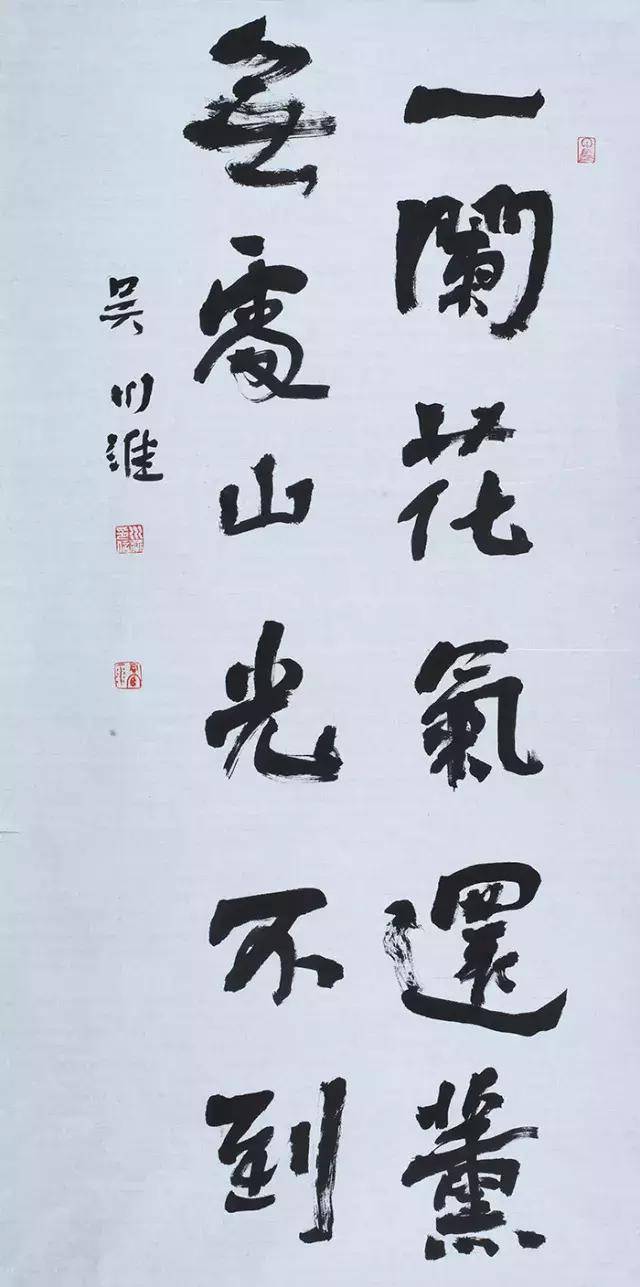 一闌花氣還薰
無處山光不到
吴川淮